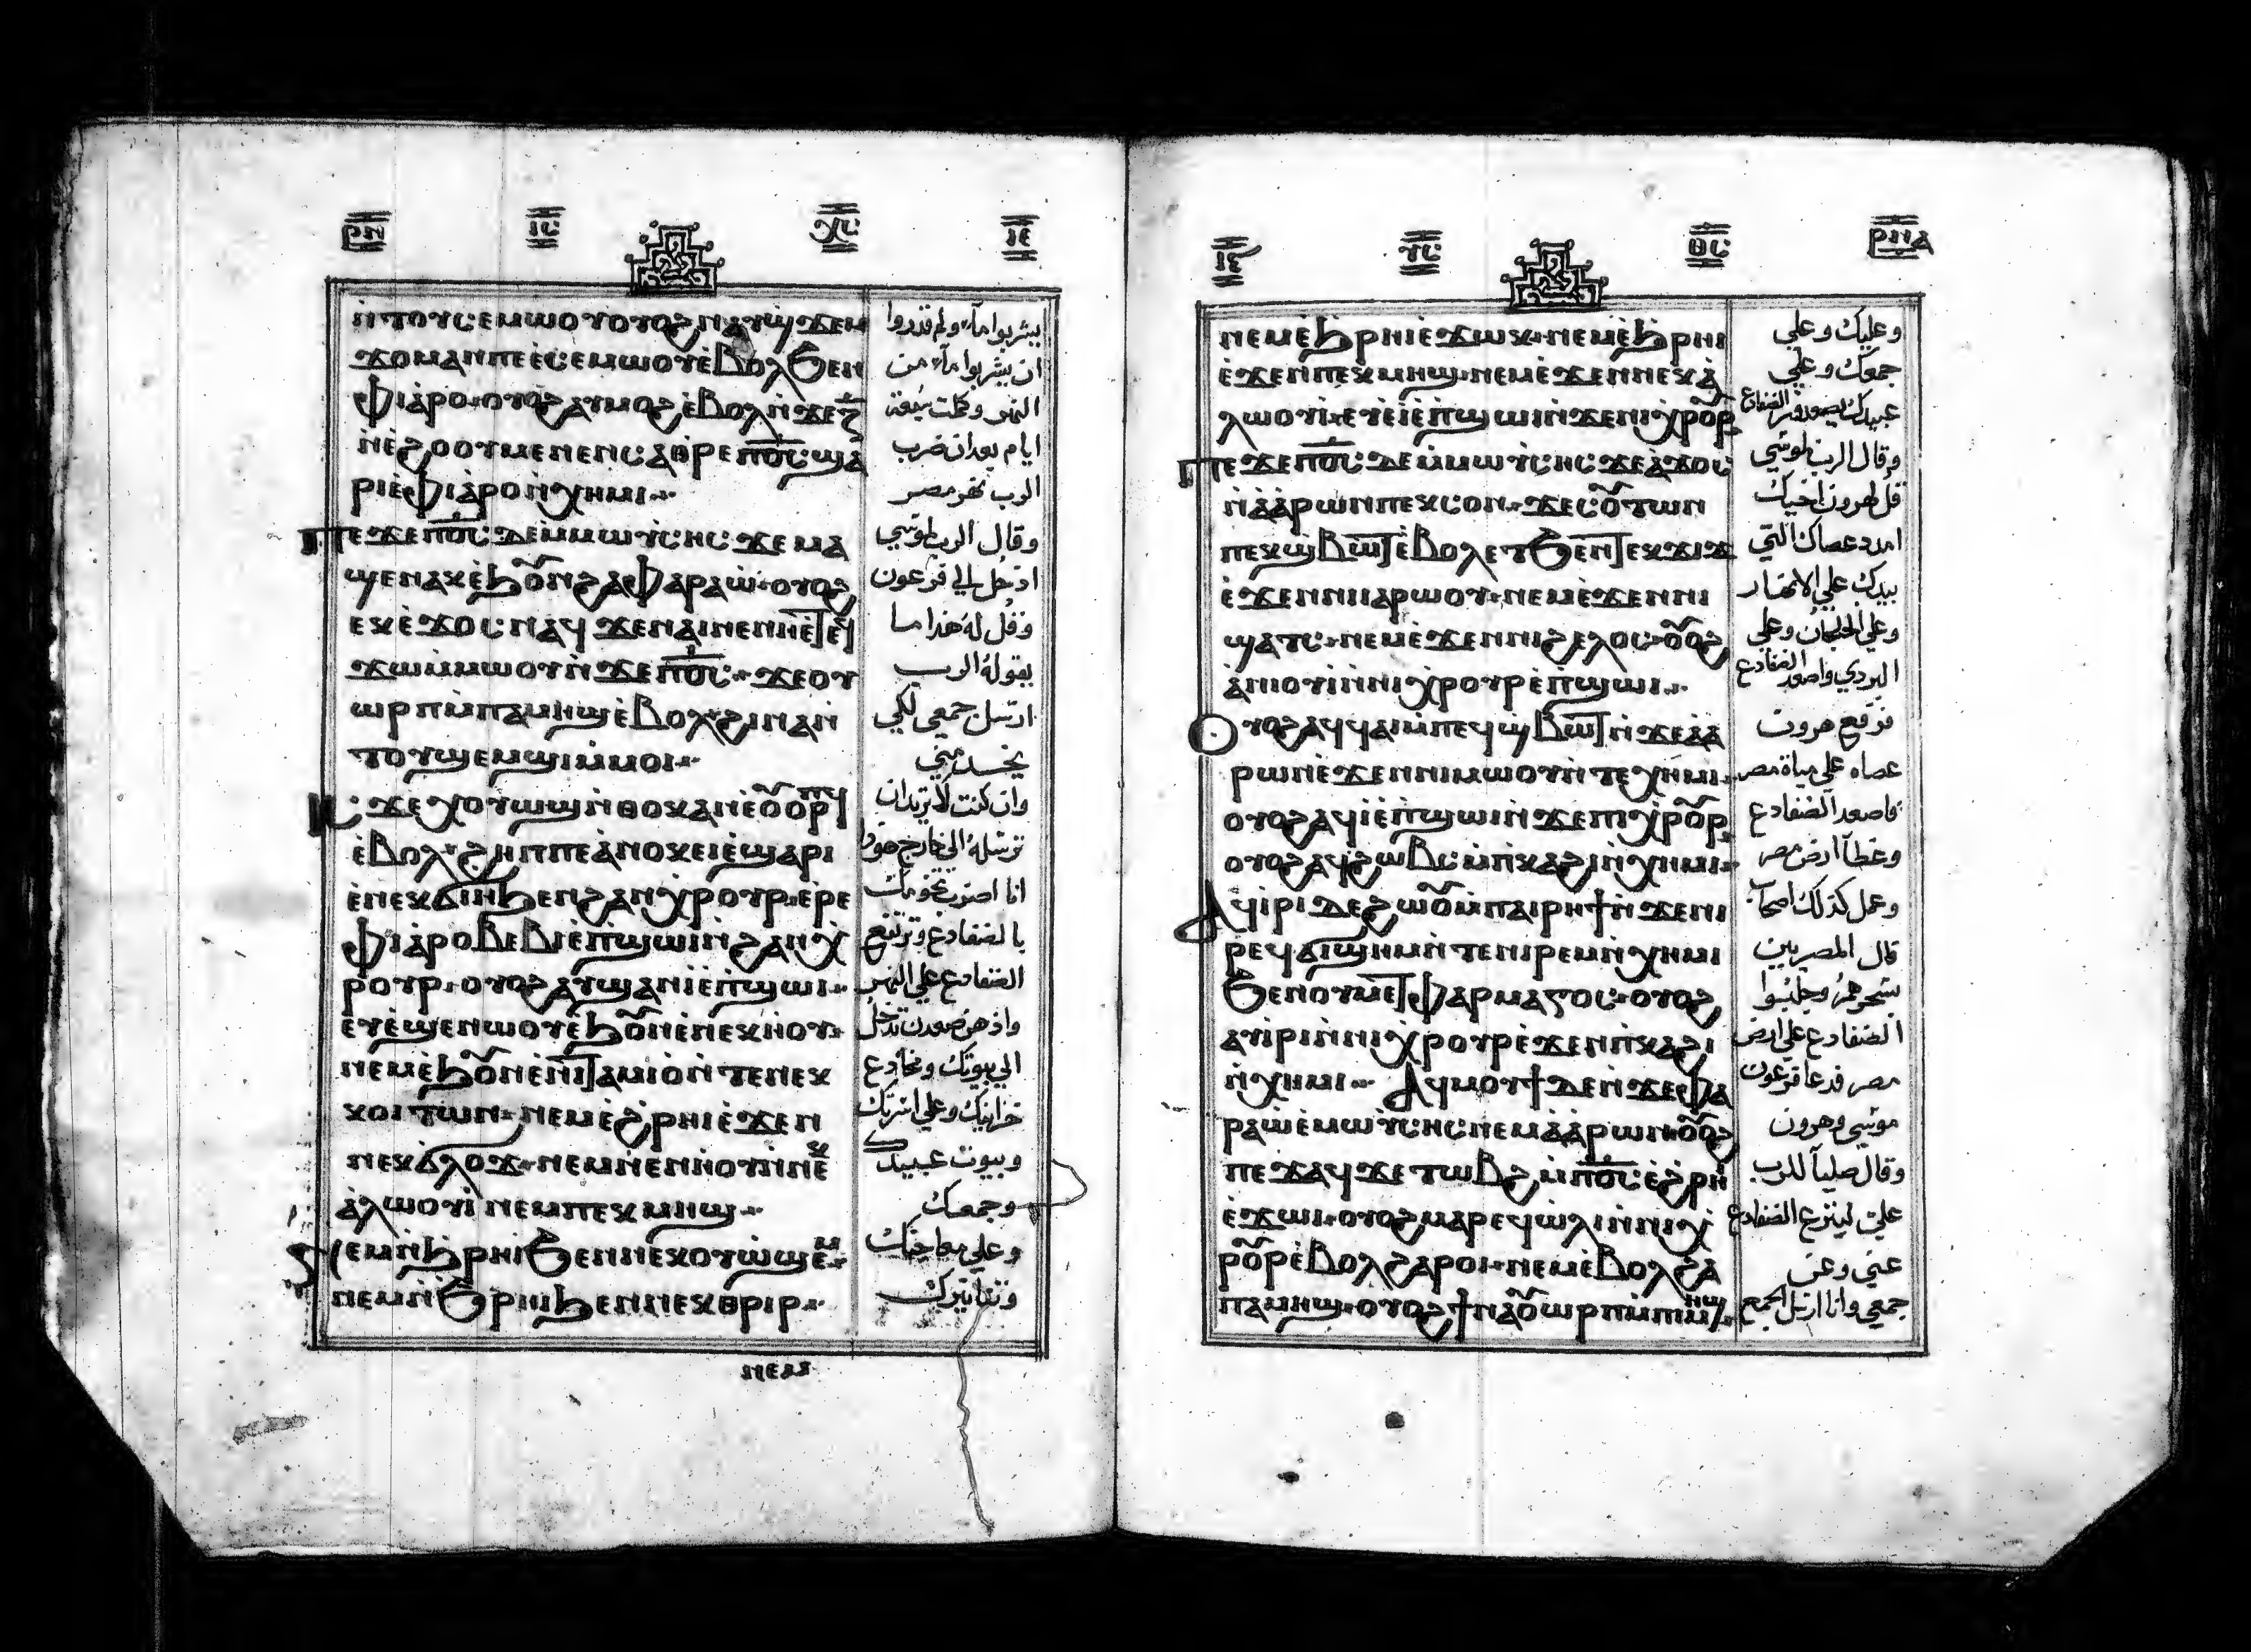 ⲣⲛ ⲓⲥ ⲭⲥ ⲓⲉ
ⲛⲧⲟⲩⲥⲉⲙⲱⲟⲩ ⲟⲩⲟϩ ⲛⲁⲩϣϫⲉⲙ
ϫⲟⲙ ⲁⲛ ⲡⲉ ⲉⲥⲉⲙⲱⲟⲩ ⲉⲃⲟⲗ ϧⲉⲛ
ⲫⲓⲁⲣⲟ ⲟⲩⲟϩ ⲁⲩⲙⲟϩ ⲉⲃⲟⲗ ⲛϫⲉ ⲍ̅
ⲛⲉϩⲟⲟⲩ ⲙⲉⲛⲉⲛⲥⲁ ⲑⲣⲉ ⲡⲟ̅ⲥ̅ ϣⲁ
ⲣⲓ ⲉⲫⲓⲁⲣⲟ ⲛⲭⲏⲙⲓ
ⲡⲉϫⲉ ⲡⲟ̅ⲥ̅ ⲇⲉ ⲙⲙⲱⲩⲥⲏⲥ ϫⲉ ⲙⲁ
ϣⲉⲛⲁⲕ ⲉϧⲟⲩⲛ ϩⲁ ⲫⲁⲣⲁⲱ ⲟⲩⲟϩ
ⲉⲕⲉϫⲟⲥ ⲛⲁϥ ϫⲉ ⲛⲁⲓ ⲛⲉ ⲛⲏⲉⲧⲉϥ
ϫⲱ ⲙⲙⲱⲟⲩ ⲛϫⲉ ⲡⲟ̅ⲥ̅ ϫⲉ ⲟⲩ
ⲱⲣⲡ ⲙⲡⲁⲙⲏϣ ⲉⲃⲟⲗ ϩⲓⲛⲁ ⲛ
ⲧⲟⲩϣⲉⲙϣⲓ ⲙⲙⲟⲓ
ⲓⲥϫⲉ ⲭⲟⲩⲱϣ ⲛⲑⲟⲕ ⲁⲛ ⲉⲟⲩⲟⲣⲡϥ
ⲉⲃⲟⲗ ϩⲏⲡⲡⲉ ⲁⲛⲟⲕ ⲉⲓⲉϣⲁⲣⲓ
ⲉⲛⲉⲕϭⲓⲏ ϧⲉⲛ ϩⲁⲛⲭⲣⲟⲩⲣ ⲉⲣⲉ
ⲫⲓⲁⲣⲟ ⲃⲉⲃⲓ ⲉⲡϣⲱⲓ ⲛϩⲁⲛⲭ
ⲣⲟⲩⲣ ⲟⲩⲟϩ ⲁⲩϣⲁⲛⲓ ⲉⲡϣⲱⲓ
ⲉⲩⲉϣⲉⲛⲱⲟⲩ ⲉϧⲟⲩⲛ ⲉⲛⲉⲕⲏⲟⲩ
ⲛⲉⲙ ⲉϧⲟⲩⲛ ⲉⲛⲓⲧⲁⲙⲓⲟⲛ ⲧⲉ ⲛⲉⲕ
ⲕⲟⲓⲧⲱⲛ ⲛⲉⲙ ⲉϩⲣⲏⲓ ⲉϫⲉⲛ
ⲛⲉⲕϭⲗⲟϫ ⲛⲉⲙ ⲛⲉⲛⲏⲟⲩ ⲛⲛⲉⲕ
ⲁⲗⲱⲟⲩⲓ ⲛⲉⲙ ⲡⲉⲕⲙⲏϣ
ⲛⲉⲙ ⲛϧⲣⲏⲓ ϧⲉⲛ ⲛⲉⲕⲟⲩⲱϣⲉⲙ
ⲛⲉⲙ ⲛϧⲣⲏⲓ ϧⲉⲛ ⲛⲉⲕⲑⲣⲓⲣ
ⲛⲉⲙ
يشربوا ماء ولم قدروا
ان يشربوا ماء من
النهر وكملت سبعة
ايام بعد ان ضرب
الرب نهر مصر
وقال الرب لموسي
ادخل الي فرعون
وقل له هذا ما
يقوله الرب
ارسل جمعي لكي
يخدمني
وان كنت لا تريد ان
ترسله الي خارج هوذا
انا اضرب تخومك
بالضفادع وترتفع
الضفادع علي النهر
واذ هن صعدن تدخل
الي بيوتك ومخادع
خزاينك وعلي اسرتك
وبيوت عبيدك
وجمعك
وعلي معاجنك
وتنانيرك
ⲓⲉ ⲩⲥ ⲑⲥ ⲣⲛⲁ
ⲛⲉⲙ ⲉϧⲣⲏⲓ ⲉϫⲱⲕ ⲛⲉⲙ ⲉϧⲣⲏⲓ
ⲉϫⲉⲛ ⲡⲉⲕⲙⲏϣ ⲛⲉⲙ ⲉϫⲉⲛ ⲛⲉⲕⲁ
ⲗⲱⲟⲩⲓ ⲉⲩⲉⲓ ⲉⲡϣⲱⲓ ⲛϫⲉ ⲛⲓⲭⲣⲟⲩⲣ
ⲡⲉϫⲉ ⲡⲟ̅ⲥ̅ ⲇⲉ ⲙⲙⲱⲩⲥⲏⲥ ϫⲉ ⲁϫⲟⲥ
ⲛⲁⲁⲣⲱⲛ ⲡⲉⲕⲥⲟⲛ ϫⲉ ⲥⲟⲩⲧⲱⲛ
ⲡⲉⲕϣⲃⲱⲧ ⲉⲃⲟⲗ ⲉⲧϧⲉⲛ ⲧⲉⲕϫⲓϫ
ⲉϫⲉⲛ ⲛⲓⲓⲁⲣⲱⲟⲩ ⲛⲉⲙ ⲉϫⲉⲛ ⲛⲓ
ϣⲁⲧⲥ ⲛⲉⲙ ⲉϫⲉⲛ ⲛⲓϩⲉⲗⲟⲥ ⲟⲩⲟϩ
ⲁⲛⲓⲟⲩⲓ ⲛⲛⲓⲭⲣⲟⲩⲣ ⲉⲡϣⲱⲓ
ⲟⲩⲟϩ ⲁϥϥⲁⲓ ⲙⲡⲉϥϣⲃⲱⲧ ⲛϫⲉ ⲁⲁ
ⲣⲱⲛ ⲉϫⲉⲛ ⲛⲓⲙⲱⲟⲩ ⲛⲧⲉ ⲭⲏⲙⲓ
ⲟⲩⲟϩ ⲁϥⲓ ⲉⲡϣⲱⲓ ⲛϫⲉ ⲡⲓⲭⲣⲟⲩⲣ
ⲟⲩⲟϩ ⲁϥϩⲱⲃⲥ ⲙⲡⲕⲁϩⲓ ⲛⲭⲏⲙⲓ
ⲁϥⲓⲣⲓ ⲇⲉ ϩⲱⲟⲩ ⲙⲡⲁⲓⲣⲏϯ ⲛϫⲉ ⲛⲓ
ⲣⲉϥϭⲓϣⲏⲙ ⲛⲧⲉ ⲛⲓⲣⲉⲙⲛⲭⲏⲙⲓ
ϧⲉⲛ ⲟⲩⲙⲉⲧⲫⲁⲣⲙⲁⲅⲟⲥ ⲟⲩⲟϩ
ⲁⲩⲓⲣⲓ ⲛⲛⲓⲭⲣⲟⲩⲣ ⲉϫⲉⲛ ⲡⲕⲁϩⲓ
ⲛⲭⲏⲙⲓ ⲁϥⲙⲟⲩϯ ⲇⲉ ⲛϫⲉ ⲫⲁ
ⲣⲁⲱ ⲉⲙⲱⲩⲥⲏⲥ ⲛⲉⲙ ⲁⲁⲣⲱⲛ ⲟⲩⲟϩ
ⲡⲉϫⲁϥ ϫⲉ ⲧⲱⲃϩ ⲙⲡⲟ̅ⲥ̅ ⲉϩⲣⲏⲓ
ⲉϫⲱⲓ ⲟⲩⲟϩ ⲙⲁⲣⲉϥⲱⲗⲓ ⲛⲛⲓⲭ
ⲣⲟⲩⲣ ⲉⲃⲟⲗ ϩⲁⲣⲟⲓ ⲛⲉⲙ ⲉⲃⲟⲗ ϩⲁ
ⲡⲁⲙⲏϣ ⲟⲩⲟϩ ϯⲛⲁⲟⲩⲱⲣⲡ ⲙⲡⲓⲙⲏϣ
وعليك وعلي
جمعك وعلي
عبيدك يصعدون الضفادع
وقال الرب لموسي
قل لهرون اخيك
امدد عصاك التي
بيدك علي الانهار
وعلي الخلجان وعلي
البردي واصعد الضفادع
فرفع هرون
عصاه علي مياة مصر
فاصعد الضفادع
وغطا ارض مصر
وعمل كذلك اصحاب
قال المصريين
بسحرهم وجلبوا
الضفادع علي ارض
مصر فدعا فرعون
موسي وهرون
وقال صليا للرب
علي لينزع الضفادع
عني وعن
جمعي وانا ارسل الجمع